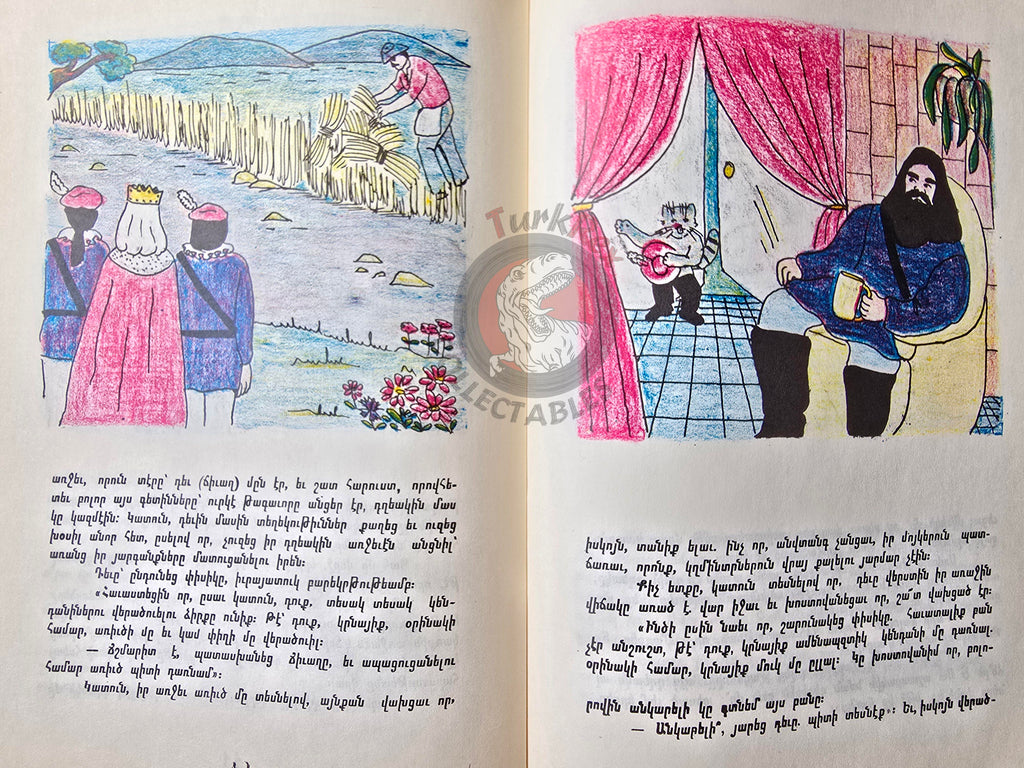 առջեւ, որուն տէրը՝ դեւ (ճիւաղ) մըն էր, եւ շատ հարուստ, որովհե-
տեւ բոլոր այս գետինները՝ ուրկէ թագաւորը անցեր էր, դղեակին մաս
կը կազմէին։ Կատուն, դեւին մասին տեղեկութիւններ քաղեց եւ ուզեց
խօսիլ անոր հետ, ըսելով որ, չուզեց իր դղեակին առջեւէն անցնիլ՝
առանց իր յարգանքները մատուցանելու իրեն։
Դեւը՝ ընդունեց փիսիկը, իւրայատուկ բարեկրթութեամբ։
«Հաւաստեցին որ, ըսաւ կատուն, դուք, տեսակ տեսակ կեն-
դանիներու վերածուելու ձիրքը ունիք։ Թէ՝ դուք, կրնայիք, օրինակի
համար, առիւծի մը եւ կամ փիղի մը վերածուիլ։
— Ճշմարիտ է, պատասխանեց ճիւաղը, եւ ապացուցանելու
համար առիւծ պիտի դառնամ»։
Կատուն, իր առջեւ առիւծ մը տեսնելով, այնքան վախցաւ որ,
TurkRex
COLLECTABLES
իսկոյն, տանիք ելաւ. ինչ որ, անվտանգ չանցաւ, իր մոյկերուն պատ-
ճառաւ, որոնք, կղմինտրներուն վրայ քալելու յարմար չէին։
Քիչ ետքը, կատուն տեսնելով որ, դեւը վերստին իր առաջին
վիճակը առած է, վար իջաւ եւ խոստովանեցաւ որ, շա՜տ վախցած էր։
«Ինծի ըսին նաեւ որ, շարունակեց փիսիկը. Հաւատալիք բան
չէր անշուշտ, թէ՝ դուք, կրնայիք ամենապզտիկ կենդանի մը դառնալ.
օրինակի համար, կրնայիք մուկ մը ըլլալ։ Կը խոստովանիմ որ, բոլո-
րովին անկարելի կը գտնեմ այս բանը։
— Անկարելի՞, յարեց դեւը. պիտի տեսնէք»։ Եւ, իսկոյն վերած-